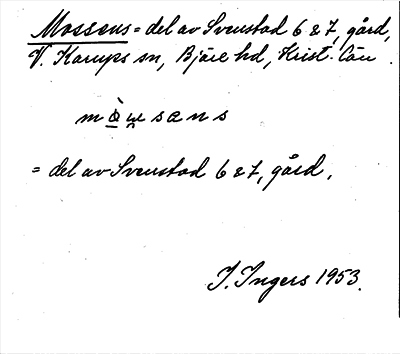 Mossens = del av Svenstad 6 & 7, gård,
V. Karups sn, Bjäre hd, Krist. län.
mò̲w̲sæns
= del av Svenstad 6 & 7, gård.
I. Ingers 1953.